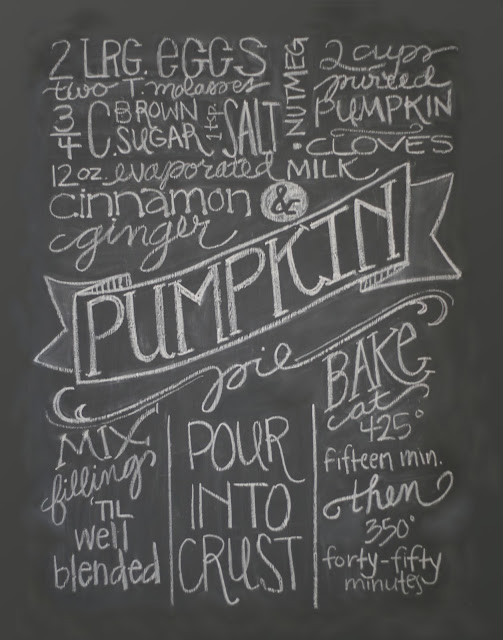 2 LRG. EGGS
two T. molasses
3/4 C. BROWN SUGAR
1 tsp. SALT
• NUTMEG
2 cups
puréed
PUMPKIN
• CLOVES
12 oz. evaporated MILK
cinnamon &
ginger
PUMPKIN
pie
MIX
fillings
'TIL
well
blended
POUR
INTO
CRUST
BAKE
at
425°
fifteen min.
then
350°
forty-fifty
minutes